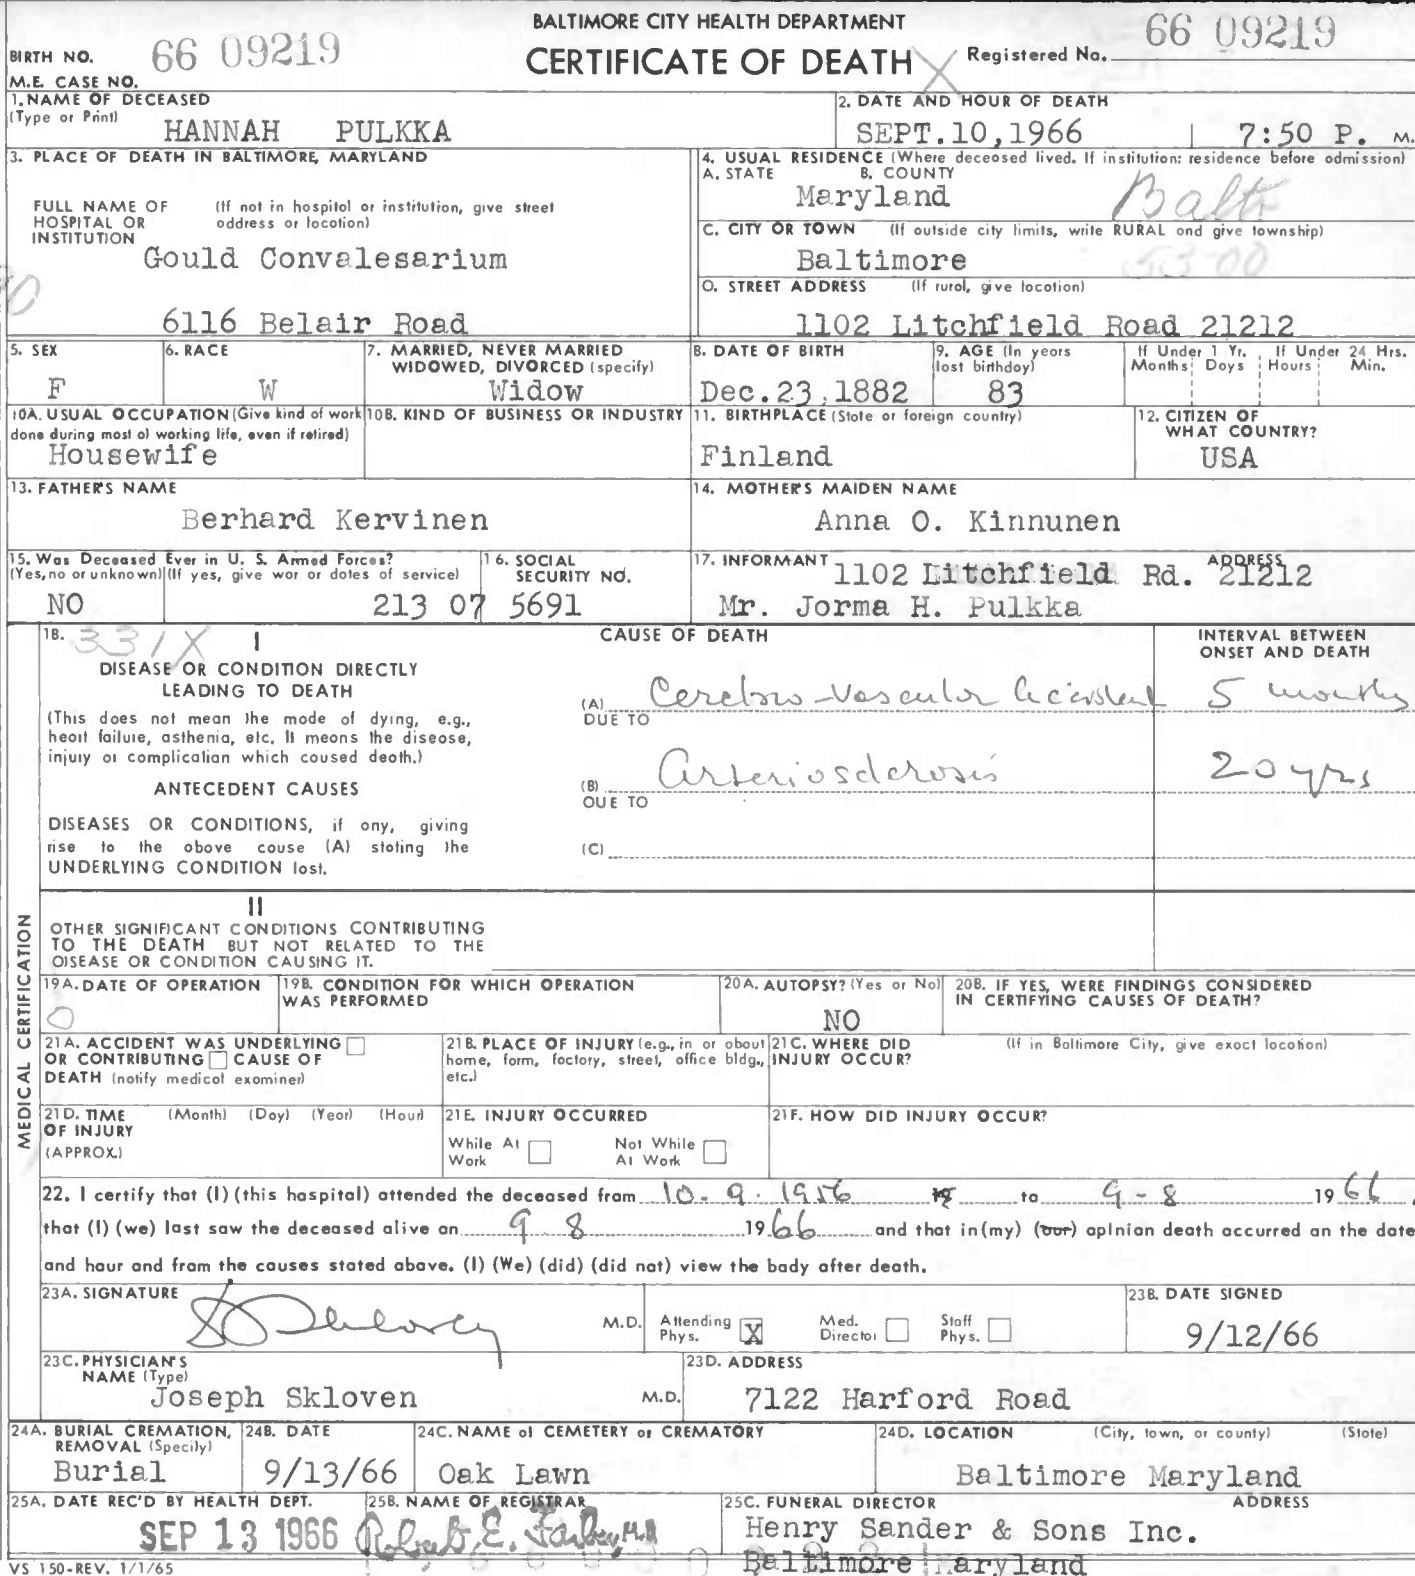 BALTIMORE CITY HEALTH DEPARTMENT
CERTIFICATE OF DEATH
BIRTH NO. 66 09219
Registered No. 66 09219
M.E. CASE NO.
1. NAME OF DECEASED
(Type or Print)
HANNAH PULKKA
2. DATE AND HOUR OF DEATH
SEPT.10,1966 7:50 P. M.
3. PLACE OF DEATH IN BALTIMORE, MARYLAND
FULL NAME OF HOSPITAL OR INSTITUTION
(If not in hospital or institution, give street address or location)
Gould Convalesarium
6116 Belair Road
4. USUAL RESIDENCE (Where deceased lived. If institution: residence before admission)
A. STATE B. COUNTY
Maryland Balto
C. CITY OR TOWN (If outside city limits, write RURAL and give township)
Baltimore 53-00
D. STREET ADDRESS (If rural, give location)
1102 Litchfield Road 21212
5. SEX
F
6. RACE
W
7. MARRIED, NEVER MARRIED
WIDOWED, DIVORCED (specify)
Widow
8. DATE OF BIRTH
Dec.23,1882
9. AGE (In years
last birthday)
83
If Under 1 Yr.
Months Days
If Under 24 Hrs.
Hours Min.
10A. USUAL OCCUPATION (Give kind of work
done during most of working life, even if retired)
Housewife
10B. KIND OF BUSINESS OR INDUSTRY
11. BIRTHPLACE (State or foreign country)
Finland
12. CITIZEN OF
WHAT COUNTRY?
USA
13. FATHER'S NAME
Berhard Kervinen
14. MOTHER'S MAIDEN NAME
Anna O. Kinnunen
15. Was Deceased Ever in U. S. Armed Forces?
(Yes, no or unknown) (If yes, give war or dates of service)
NO
16. SOCIAL
SECURITY NO.
213 07 5691
17. INFORMANT ADDRESS
1102 Litchfield Rd. 21212
Mr. Jorma H. Pulkka
MEDICAL CERTIFICATION
18. 331X I
CAUSE OF DEATH
INTERVAL BETWEEN
ONSET AND DEATH
DISEASE OR CONDITION DIRECTLY
LEADING TO DEATH
(This does not mean the mode of dying, e.g.,
heart failure, asthenia, etc. It means the disease,
injury or complication which caused death.)
(A) Cerebro-Vascular Accident 5 months
DUE TO
ANTECEDENT CAUSES
(B) Arteriosclerosis 20 yrs
DUE TO
DISEASES OR CONDITIONS, if any, giving
rise to the above cause (A) stating the
UNDERLYING CONDITION last.
(C)
II
OTHER SIGNIFICANT CONDITIONS CONTRIBUTING
TO THE DEATH BUT NOT RELATED TO THE
DISEASE OR CONDITION CAUSING IT.
19A. DATE OF OPERATION
0
19B. CONDITION FOR WHICH OPERATION
WAS PERFORMED
20A. AUTOPSY? (Yes or No)
NO
20B. IF YES, WERE FINDINGS CONSIDERED
IN CERTIFYING CAUSES OF DEATH?
21A. ACCIDENT WAS UNDERLYING
OR CONTRIBUTING CAUSE OF
DEATH (notify medical examiner)
21B. PLACE OF INJURY (e.g., in or about
home, farm, factory, street, office bldg.,
etc.)
21C. WHERE DID
INJURY OCCUR?
(If in Baltimore City, give exact location)
21D. TIME (Month) (Day) (Year) (Hour)
OF INJURY
(APPROX.)
21E. INJURY OCCURRED
While At Work
Not While At Work
21F. HOW DID INJURY OCCUR?
22. I certify that (I) (this hospital) attended the deceased from 10-9-1956 19 to 9-8 1966,
that (I) (we) last saw the deceased alive on 9 8 1966 and that in (my) (our) opinion death occurred on the date
and hour and from the causes stated above. (I) (We) (did) (did not) view the body after death.
23A. SIGNATURE
M.D.
Attending Phys. X
Med. Director
Staff Phys.
23B. DATE SIGNED
9/12/66
23C. PHYSICIAN'S
NAME (Type)
Joseph Skloven M.D.
23D. ADDRESS
7122 Harford Road
24A. BURIAL CREMATION,
REMOVAL (Specify)
Burial
24B. DATE
9/13/66
24C. NAME of CEMETERY or CREMATORY
Oak Lawn
24D. LOCATION (City, town, or county) (State)
Baltimore Maryland
25A. DATE REC'D BY HEALTH DEPT.
SEP 13 1966
25B. NAME OF REGISTRAR
Robert E. Farber, M.D.
25C. FUNERAL DIRECTOR ADDRESS
Henry Sander & Sons Inc.
Baltimore Maryland
VS 150-REV. 1/1/65